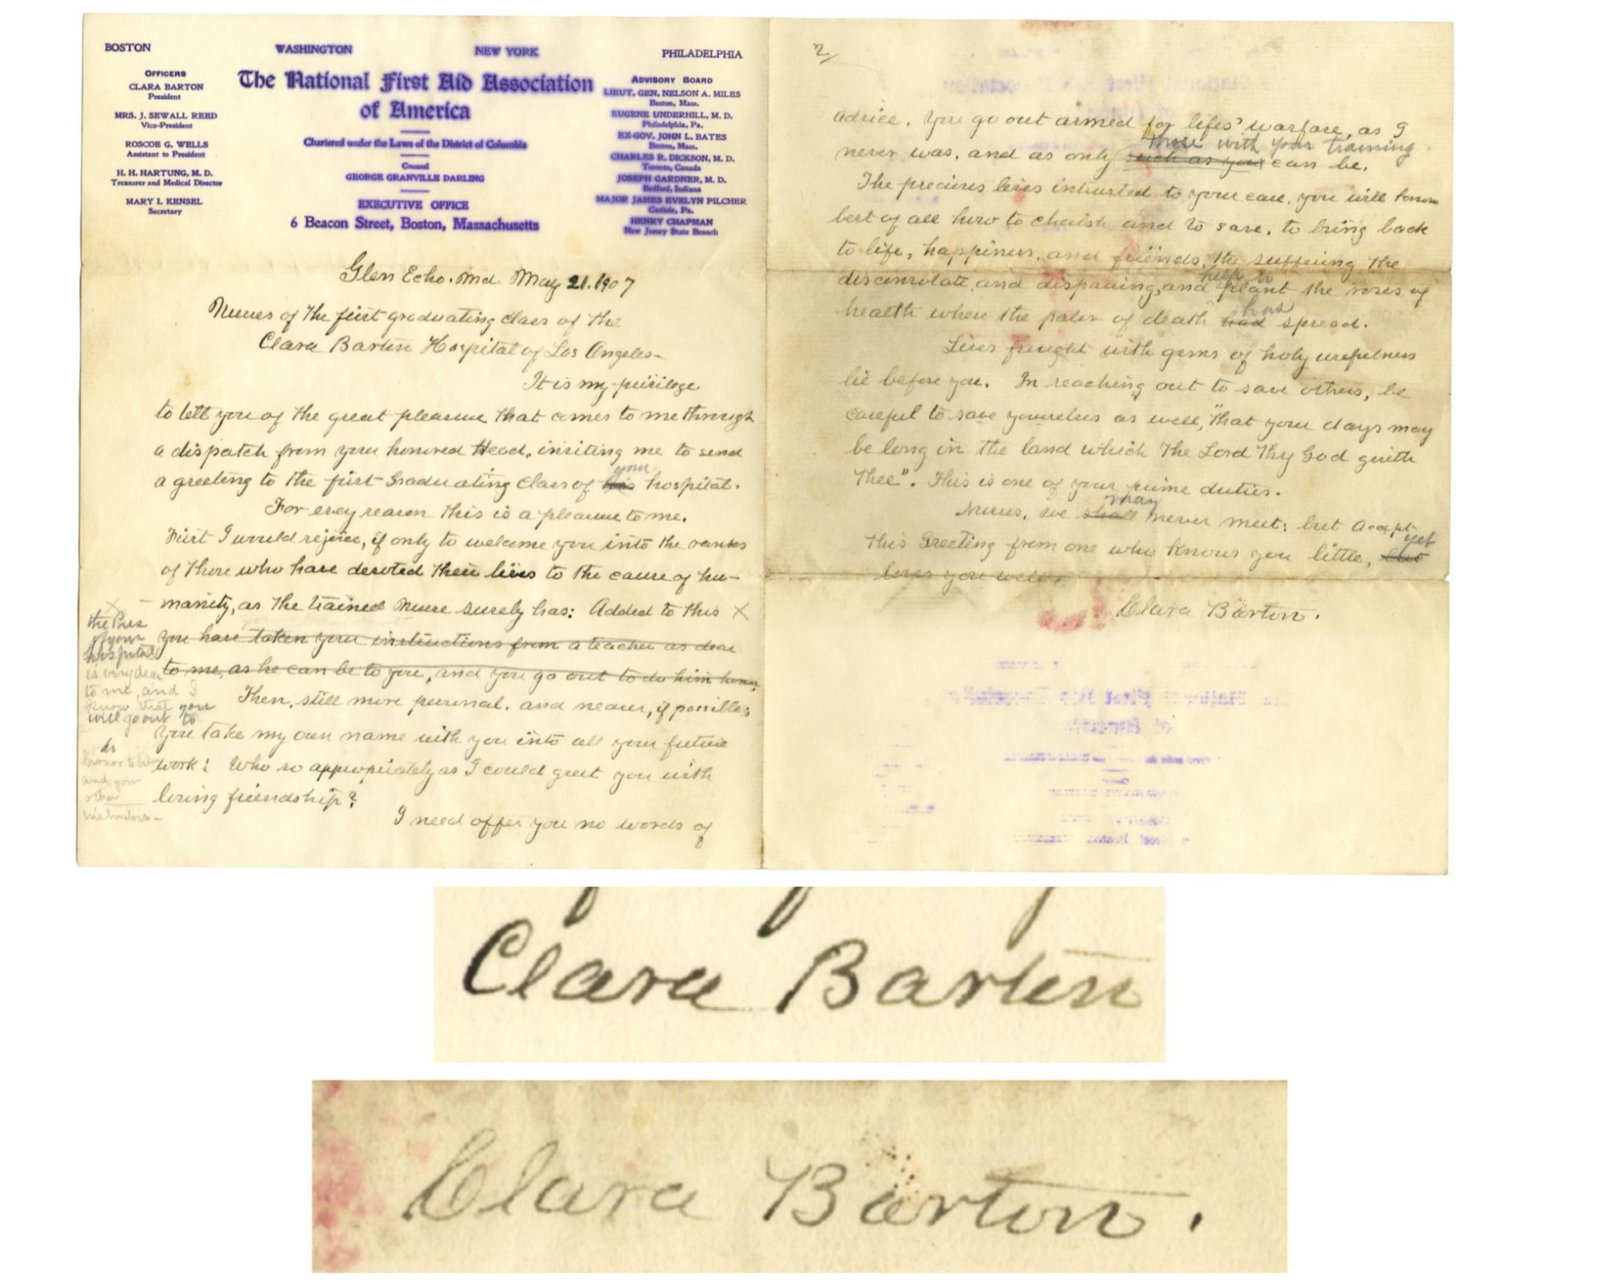 BOSTON WASHINGTON NEW YORK PHILADELPHIA
OFFICERS
CLARA BARTON
President
MRS. J. SEWALL REED
Vice-President
ROSCOE G. WELLS
Assistant to President
H. H. HARTUNG, M. D.
Treasurer and Medical Director
MARY I. KENSEL
Secretary
The National First Aid Association
of America
Chartered under the Laws of the District of Columbia
Counsel
GEORGE GRANVILLE DARLING
EXECUTIVE OFFICE
6 Beacon Street, Boston, Massachusetts
ADVISORY BOARD
LIEUT. GEN. NELSON A. MILES
Boston, Mass.
EUGENE UNDERHILL, M. D.
Philadelphia, Pa.
EX-GOV. JOHN L. BATES
Boston, Mass.
CHARLES R. DICKSON, M. D.
Toronto, Canada
JOSEPH GARDNER, M. D.
Bedford, Indiana
MAJOR JAMES EVELYN PILCHER
Carlisle, Pa.
HENRY CHAPMAN
New Jersey State Branch
Glen Echo. Md. May 21. 1907
Nurses of the first graduating class of the
Clara Barton Hospital of Los Angeles—
It is my privilege
to tell you of the great pleasure that comes to me through
a dispatch from your honored Head, inviting me to send
your
a greeting to the first Graduating Class of his hospital.
For every reason this is a pleasure to me.
First I would rejoice, if only to welcome you into the ranks
of those who have devoted their lives to the cause of hu—
manity, as the trained nurse surely has: Added to this X
you have taken your instructions from a teacher as dear
to me, as he can be to you, and you go out to do him honor
the Pres
of your
hospital
is very dear
to me, and I
know that you
will go out to
do
honor to him
and your
other
instructors—
Then, still more personal, and nearer, if possible;
you take my own name with you into all your future
work! Who so appropriately as I could greet you with
loving friendship?
I need offer you no words of
2/
advice. You go out armed for lifes' warfare, as I
those with your training
never was, and as only such as you can be.
The precious lives intrusted to your care, you will know
best of all how to cherish and to save, to bring back
to life, happiness, and friends, the suffering the
help to
disconsolate, and dispairing, and plant the roses of
has
health where the palor of death had spread.
Lives fraught with gems of holy usefulness
lie before you. In reaching out to save others, be
careful to save yourselves as well, "that your days may
be long in the land which The Lord Thy God giveth
Thee". This is one of your prime duties.
may
Nurses, we shall never meet; but accept
yet
this Greeting from one who knows you little, but
loves you well.
Clara Barton.
Clara Barton
Clara Barton.